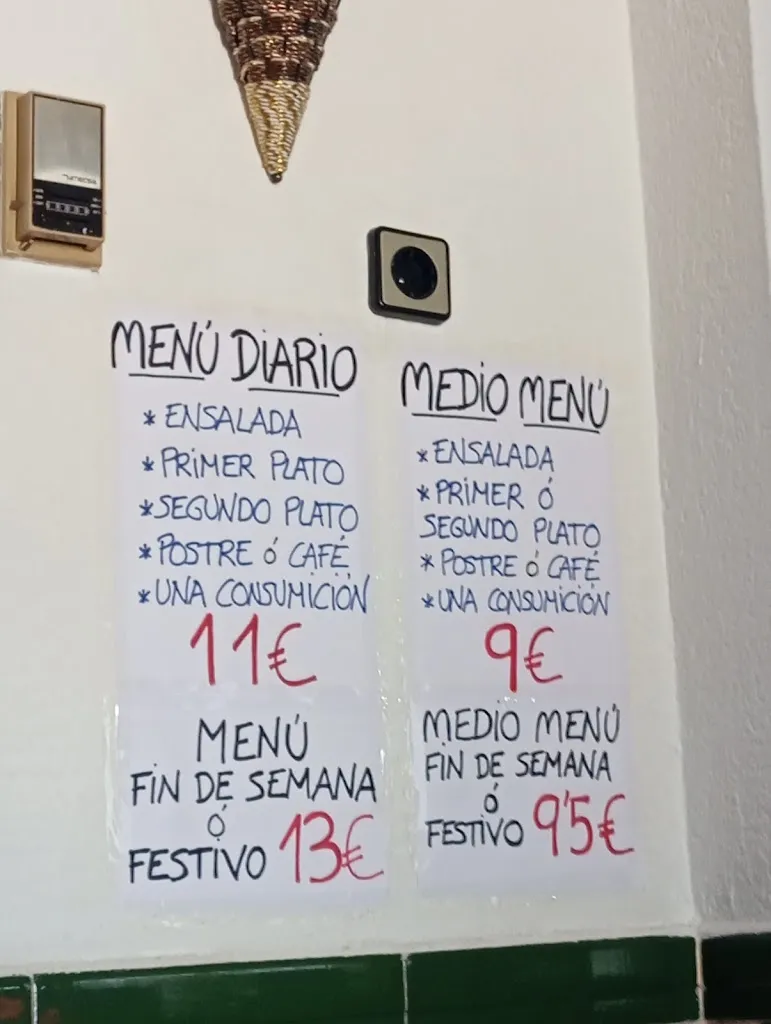 MENÚ DIARIO
* ENSALADA
* PRIMER PLATO
* SEGUNDO PLATO
* POSTRE ó CAFÉ
* UNA CONSUMICIÓN
11€
MENÚ
FIN DE SEMANA
Ó
FESTIVO 13€
MEDIO MENÚ
* ENSALADA
* PRIMER Ó
SEGUNDO PLATO
* POSTRE ó CAFÉ
* UNA CONSUMICIÓN
9€
MEDIO MENÚ
FIN DE SEMANA
Ó
FESTIVO 9'5€